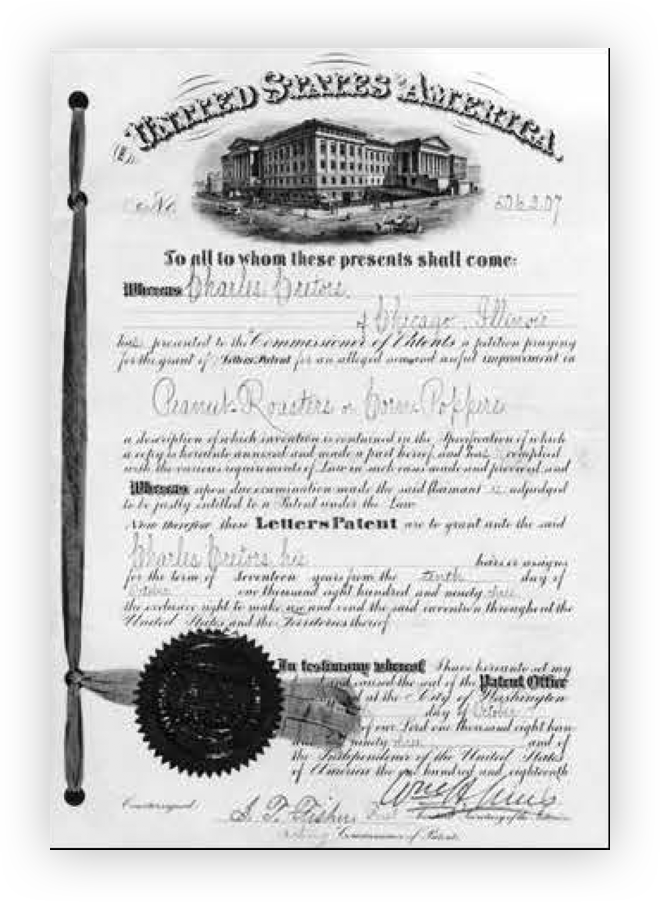 THE UNITED STATES OF AMERICA.
No. 506207
To all to whom these presents shall come:
Whereas Charles Cretors
of Chicago, Illinois
has presented to the Commissioner of Patents a petition praying
for the grant of Letters Patent for an alleged new and useful improvement in
Peanut-Roasters or Corn-Poppers
a description of which invention is contained in the Specification of which
a copy is hereunto annexed and made a part hereof, and has complied
with the various requirements of Law in such cases made and provided, and
Whereas upon due examination made the said Claimant is adjudged
to be justly entitled to a Patent under the Law.
Now therefore these Letters Patent are to grant unto the said
Charles Cretors, his
heirs or assigns
for the term of Seventeen years from the tenth day of
October one thousand eight hundred and ninety three
the exclusive right to make, use and vend the said invention throughout the
United States and the Territories thereof.
In testimony whereof I have hereunto set my
hand and caused the seal of the Patent Office
at the City of Washington
day of October
of our Lord one thousand eight hun-
ninety three and of
the Independence of the United States
of America the one hundred and eighteenth
Countersigned
S. T. Fisher
Acting Commissioner of Patents.